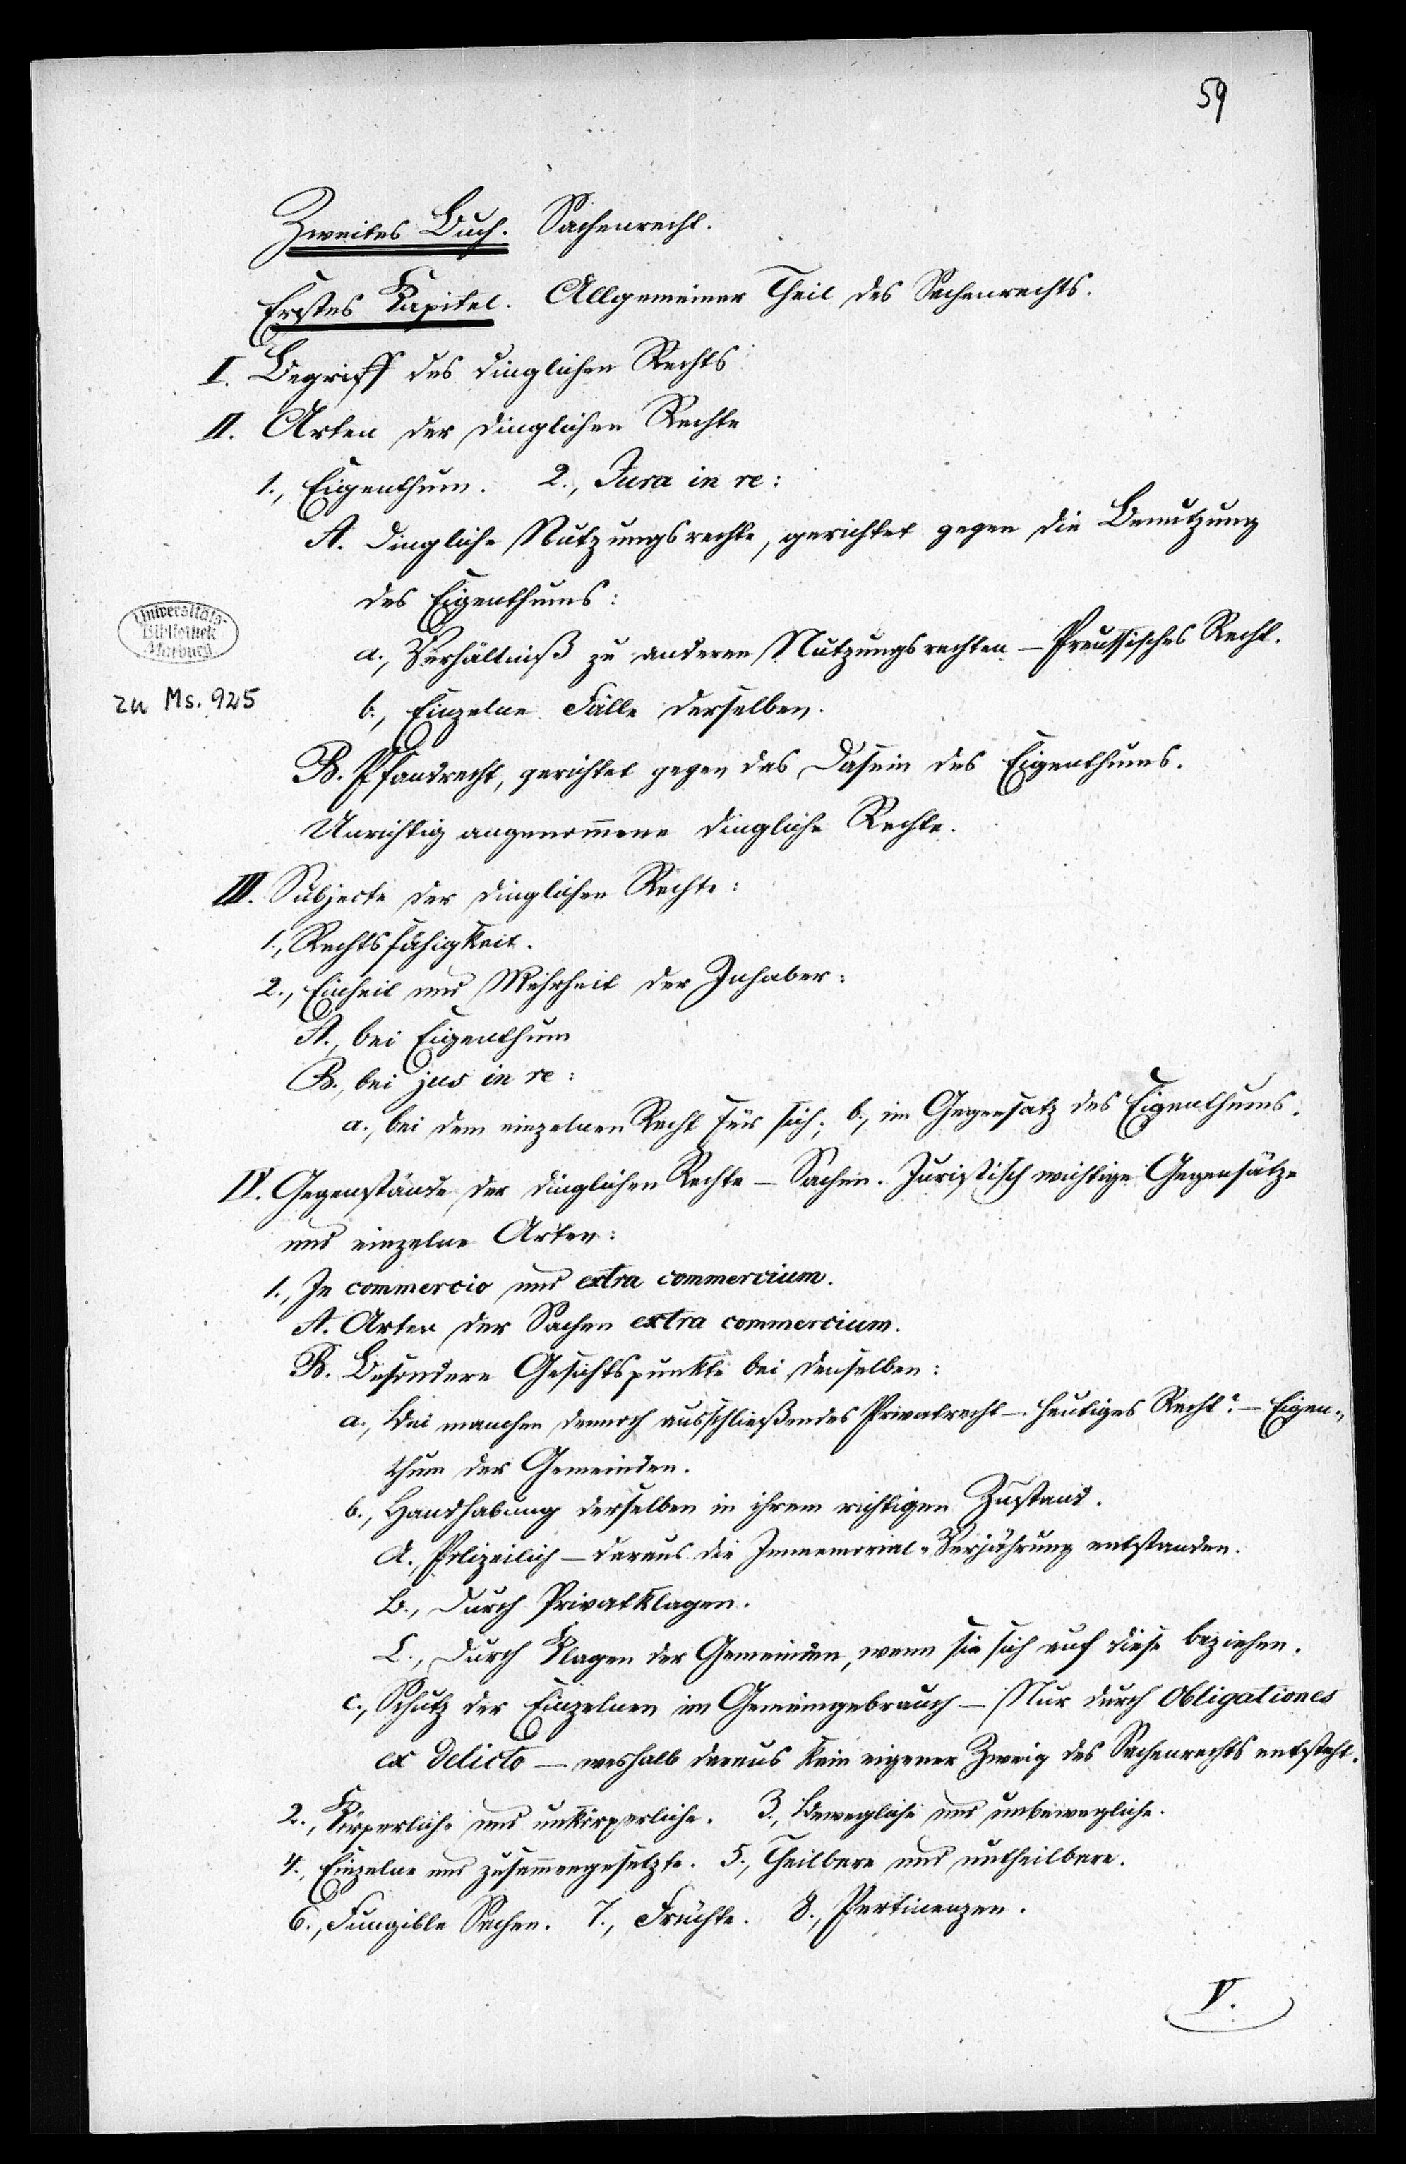 59
Zweites Buch. Sachenrecht.
Erstes Kapitel. Allgemeiner Theil des Sachenrechts.
I. Begriff des dinglichen Rechts
II. Arten der dinglichen Rechte
1., Eigenthum. 2., Jura in re:
A. dingliche Nutzungsrechte, gerichtet gegen die Benutzung
des Eigenthums:
a., Verhältniß zu anderen Nutzungsrechten – Preussisches Recht.
b., Einzelne Fälle derselben.
B. Pfandrecht, gerichtet gegen das Dasein des Eigenthums.
Unrichtig angenom̄ene dingliche Rechte.
Universitäts-
Bibliothek
Marburg
zu Ms. 925
III. Subjecte der dinglichen Rechte:
1., Rechtsfähigkeit.
2., Einheit und Mehrheit der Inhaber:
A., bei Eigenthum
B., bei jus in re:
a., bei dem einzelnen Recht für sich; b., im Gegensatz des Eigenthums.
IV. Gegenstände der dinglichen Rechte – Sachen. Juristisch wichtige Gegensätze
und einzelne Arten:
1., In commercio und extra commercium.
A. Arten der Sachen extra commercium.
B. Besondere Gesichtspunkte bei denselben:
a., Bei manchen dennoch ausschließendes Privatrecht – heutiges Recht? – Eigen-
thum der Gemeinden.
b., Handhabung derselben in ihrem richtigen Zustand.
A., Polizeilich – daraus die Immemorial-Verjährung entstanden.
B., Durch Privatklagen.
C., Durch Klagen der Gemeinden, wenn sie sich auf diese beziehen.
c., Schutz der Einzelnen im Gemeingebrauch – Nur durch Obligationes
ex delicto – weshalb daraus kein eigener Zweig des Sachenrechts entsteht.
2., Körperliche und unkörperliche. 3., Bewegliche und unbewegliche.
4., Einzelne und zusam̄engesetzte. 5., Theilbare und untheilbare.
6., Fungible Sachen. 7., Früchte. 8., Pertinenzen.
V.